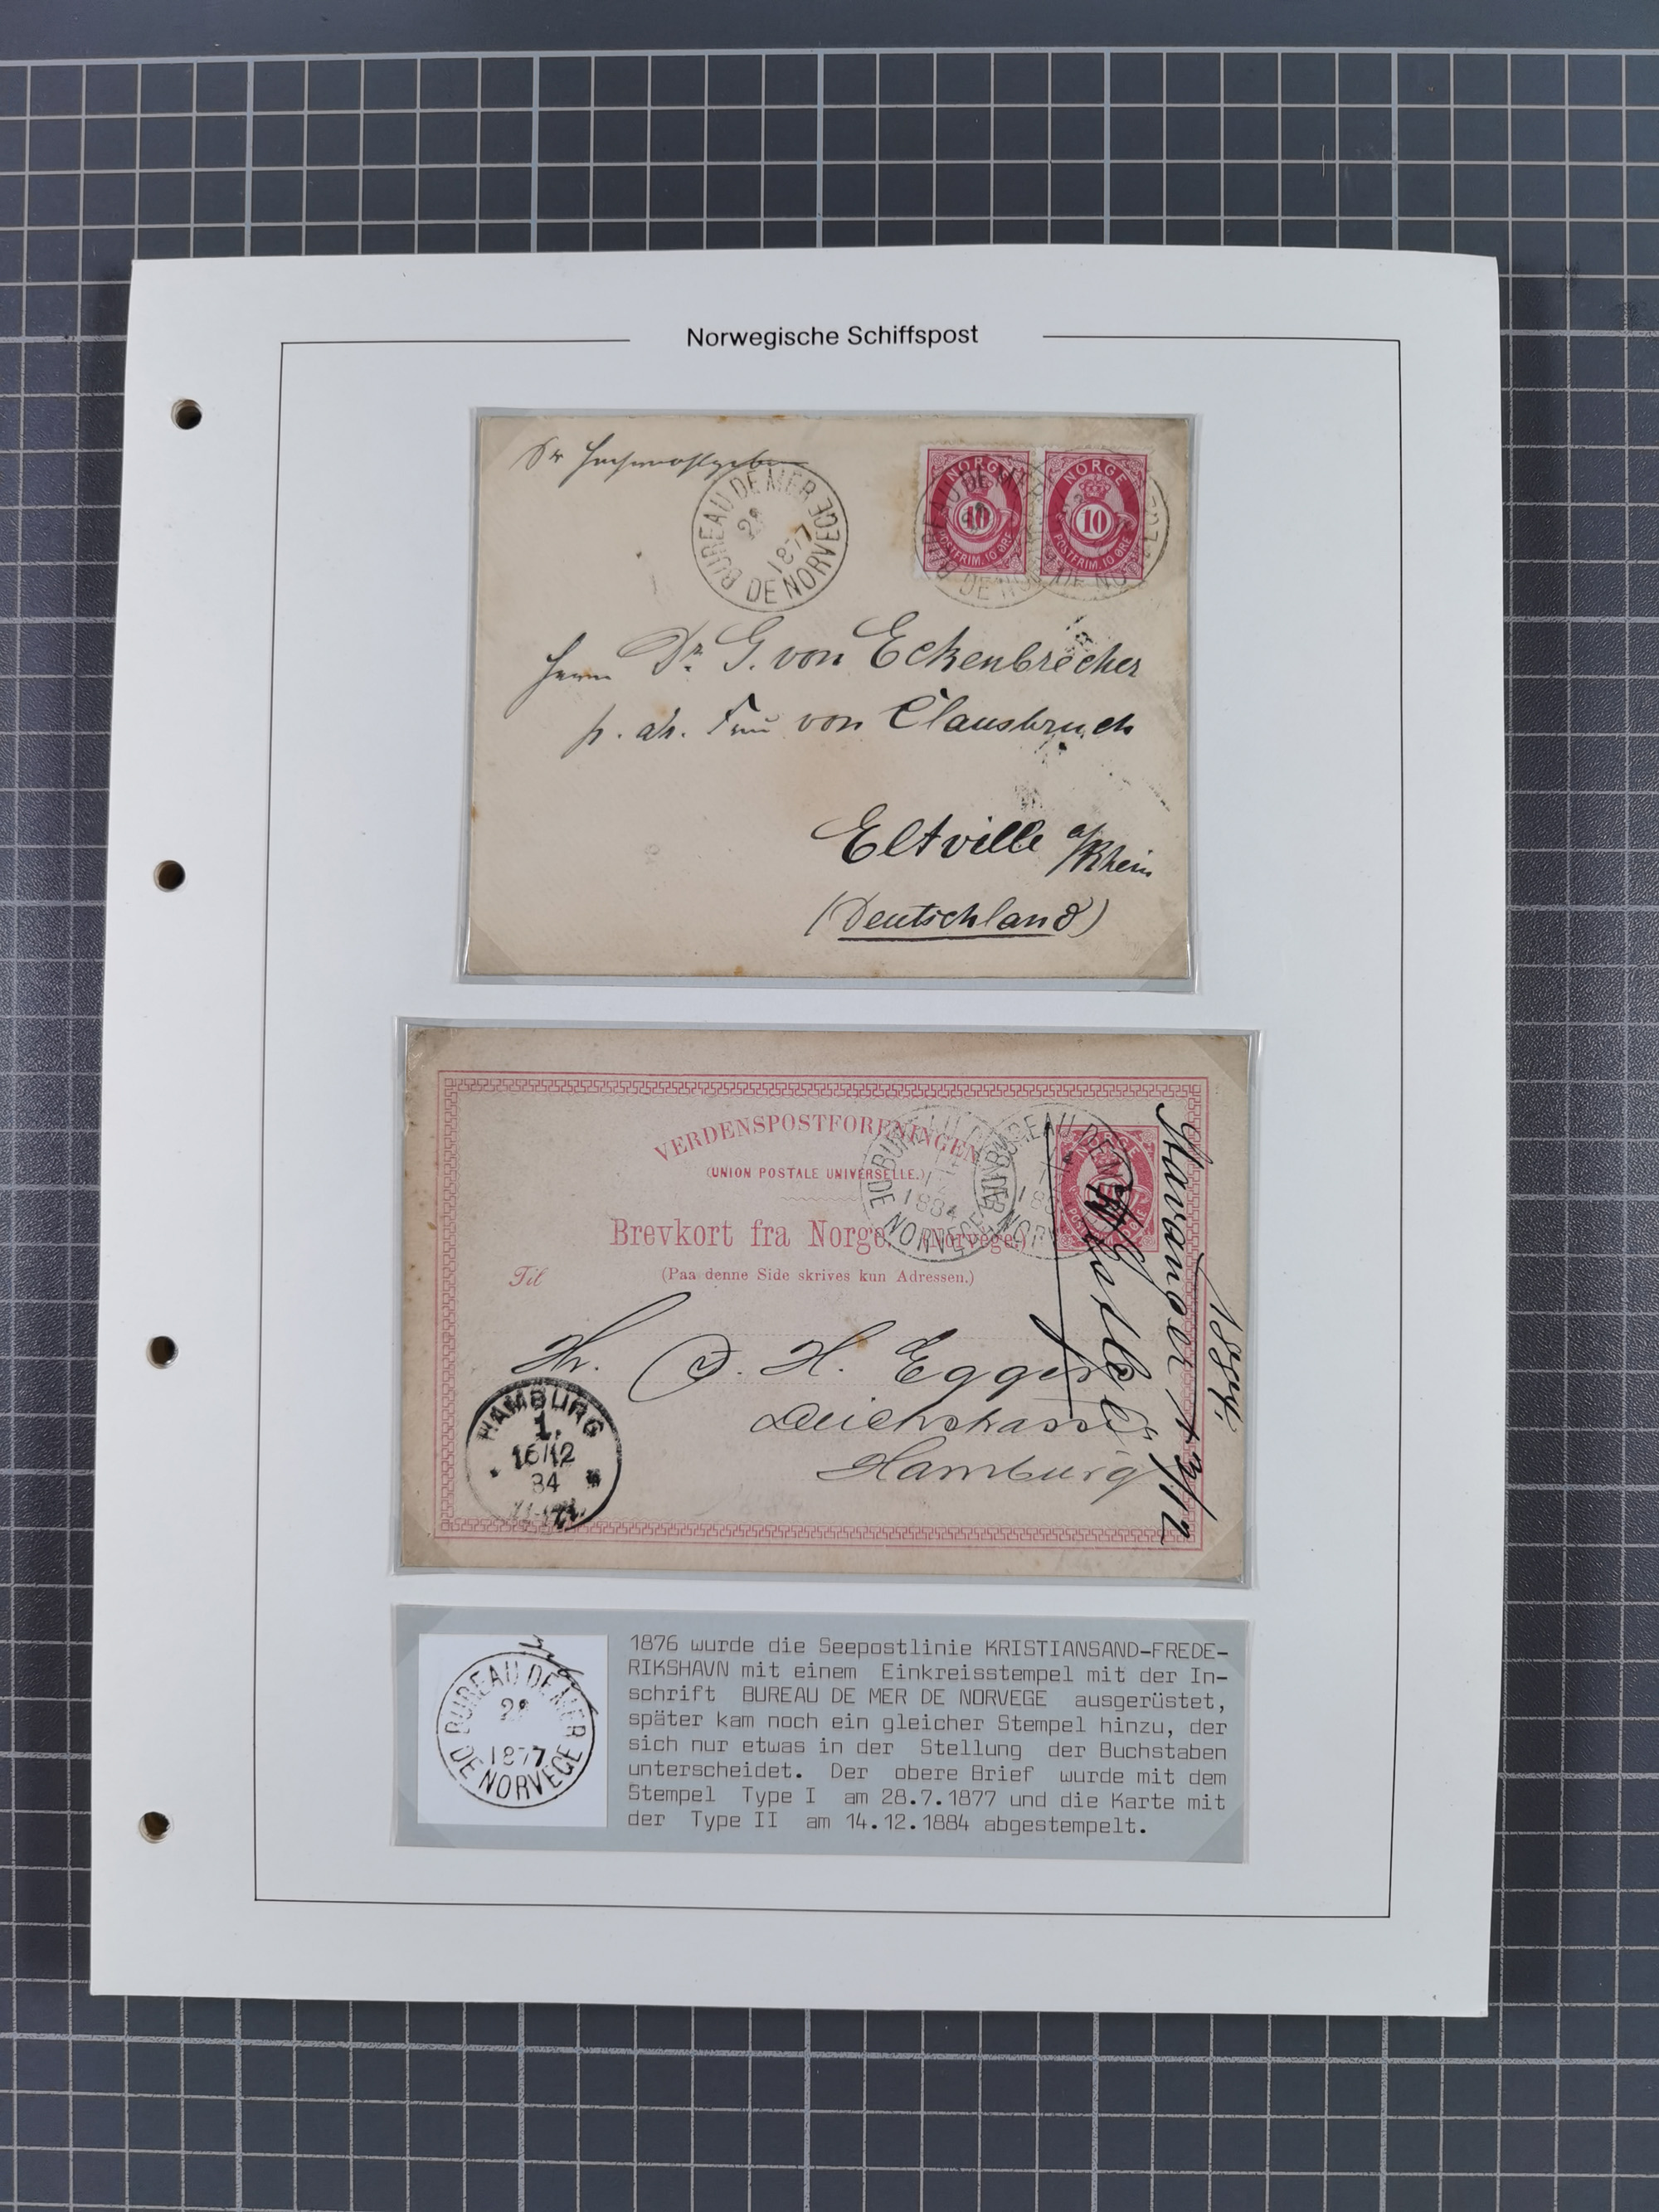 Norwegische Schiffspost
BUREAU DE MER
28
1877
DE NORVEGE
NORGE
10
POSTFRIM. 10 ØRE
NORGE
10
POSTFRIM. 10 ØRE
BUREAU DE MER
DE NORVEGE
Herrn Dr. G. von Eckenbrecher
p. adr. Frau von Clausbruch
Eltville a/Rhein
(Deutschland)
VERDENSPOSTFORENINGEN
(UNION POSTALE UNIVERSELLE.)
Brevkort fra Norge. (Norvége.)
(Paa denne Side skrives kun Adressen.)
Til
BUREAU DE MER
14
12
1884
DE NORVEGE
Stavanger 13/12
1884.
Hr. O. H. Eggers
Deichstrasse
Hamburg
HAMBURG
1.
16/12
84
BUREAU DE MER
28
1877
DE NORVEGE
1876 wurde die Seepostlinie KRISTIANSAND-FREDE-
RIKSHAVN mit einem Einkreisstempel mit der In-
schrift BUREAU DE MER DE NORVEGE ausgerüstet,
später kam noch ein gleicher Stempel hinzu, der
sich nur etwas in der Stellung der Buchstaben
unterscheidet. Der obere Brief wurde mit dem
Stempel Type I am 28.7.1877 und die Karte mit
der Type II am 14.12.1884 abgestempelt.